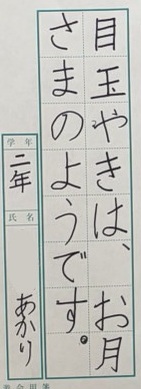 目玉やきは、お月
さまのようです。
学年
二年
氏名
あかり